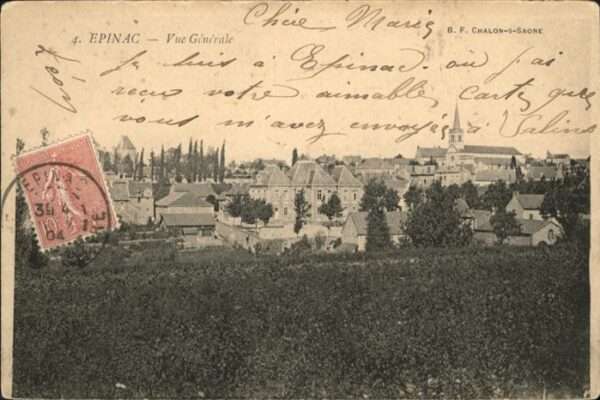 Chère Marie
B. F. CHALON-S-SAONE
4. EPINAC — Vue Générale
Je suis à Epinac. où j'ai
reçu votre aimable carte que
vous m'avez envoyée à Salins
04